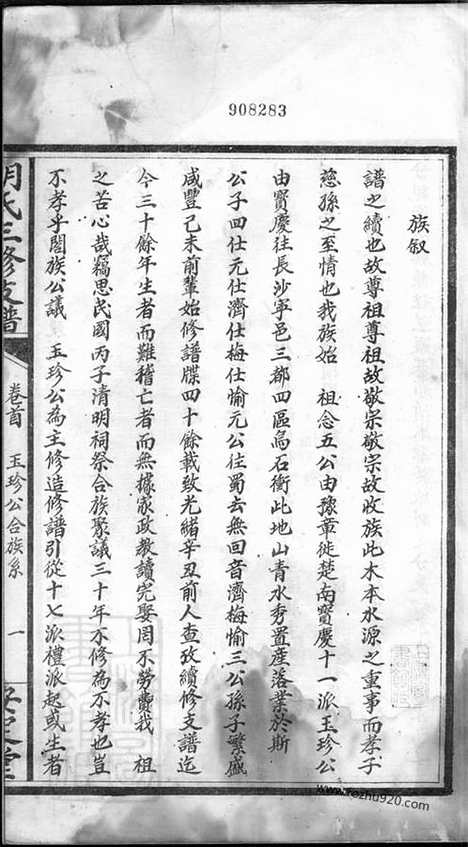 908283
族叙
譜之續也故尊祖尊祖故敬宗敬宗故收族此木本水源之重事而孝子
慈孫之至情也我族始 祖念五公由豫章徙楚南寶慶十一派玉珍公
由寶慶往長沙寧邑三都四區烏石衝此地山青水秀置產落業於斯
公子四仕元仕濟仕梅仕愉元公往蜀去無回音濟梅愉三公孫子繁盛
咸豐己未前輩始修譜牒四十餘載致光緒辛丑前人查攷續修支譜迄
今三十餘年生者而難稽亡者而無據家政教讀完娶罔不勞費我 祖
之苦心哉竊思民國丙子清明祠祭合族聚議三十年不修為不孝也豈
不孝乎闔族公議 玉珍公為主修造修譜引從十七派禮派起或生者
氏三修支譜
卷首 玉珍公合族系 一
安定堂
www.rozhu920.com